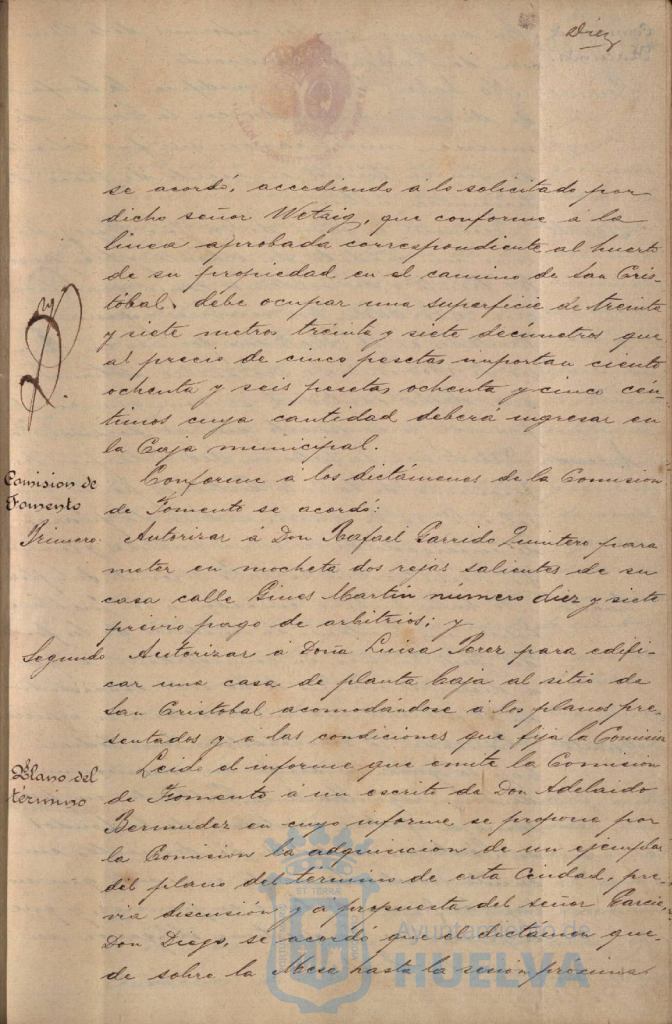 Diez
se acordó, accediendo á lo solicitado por
dicho señor Wetzig, que conforme á la
linea aprobada correspondiente al huerto
de su propiedad en el camino de San Cris-
tóbal, debe ocupar una superficie de treinta
y siete metros treinta y siete decímetros que
al precio de cinco pesetas importan ciento
ochenta y seis pesetas, ochenta y cinco cén-
timos cuya cantidad deberá ingresar en
la Caja municipal.
Comision de
Fomento
Conforme á los dictámenes de la Comision
de Fomento se acordó:
Primero. Autorizar á Don Rafael Garrido Quintero para
meter en mocheta dos rejas salientes de su
casa calle Gines Martin número diez y siete
prévio pago de arbitrios; y
Segundo Autorizar á Doña Luisa Perez para edifi-
car una casa de planta baja al sitio de
San Cristobal acomodándose á los planos pre-
sentados y á las condiciones que fija la Comisión
Plano del
término
Leido el informe que emite la Comision
de Fomento á un escrito de Don Adelaido
Bermudez en cuyo informe se propone por
la Comision la adquisicion de un ejemplar
del plano del término de esta Ciudad, pré-
via discusión y á propuesta del señor Garcia,
Don Diego, se acordó que el dictámen que-
de sobre la Mesa hasta la sesion próxima
Ayuntamiento de
HUELVA